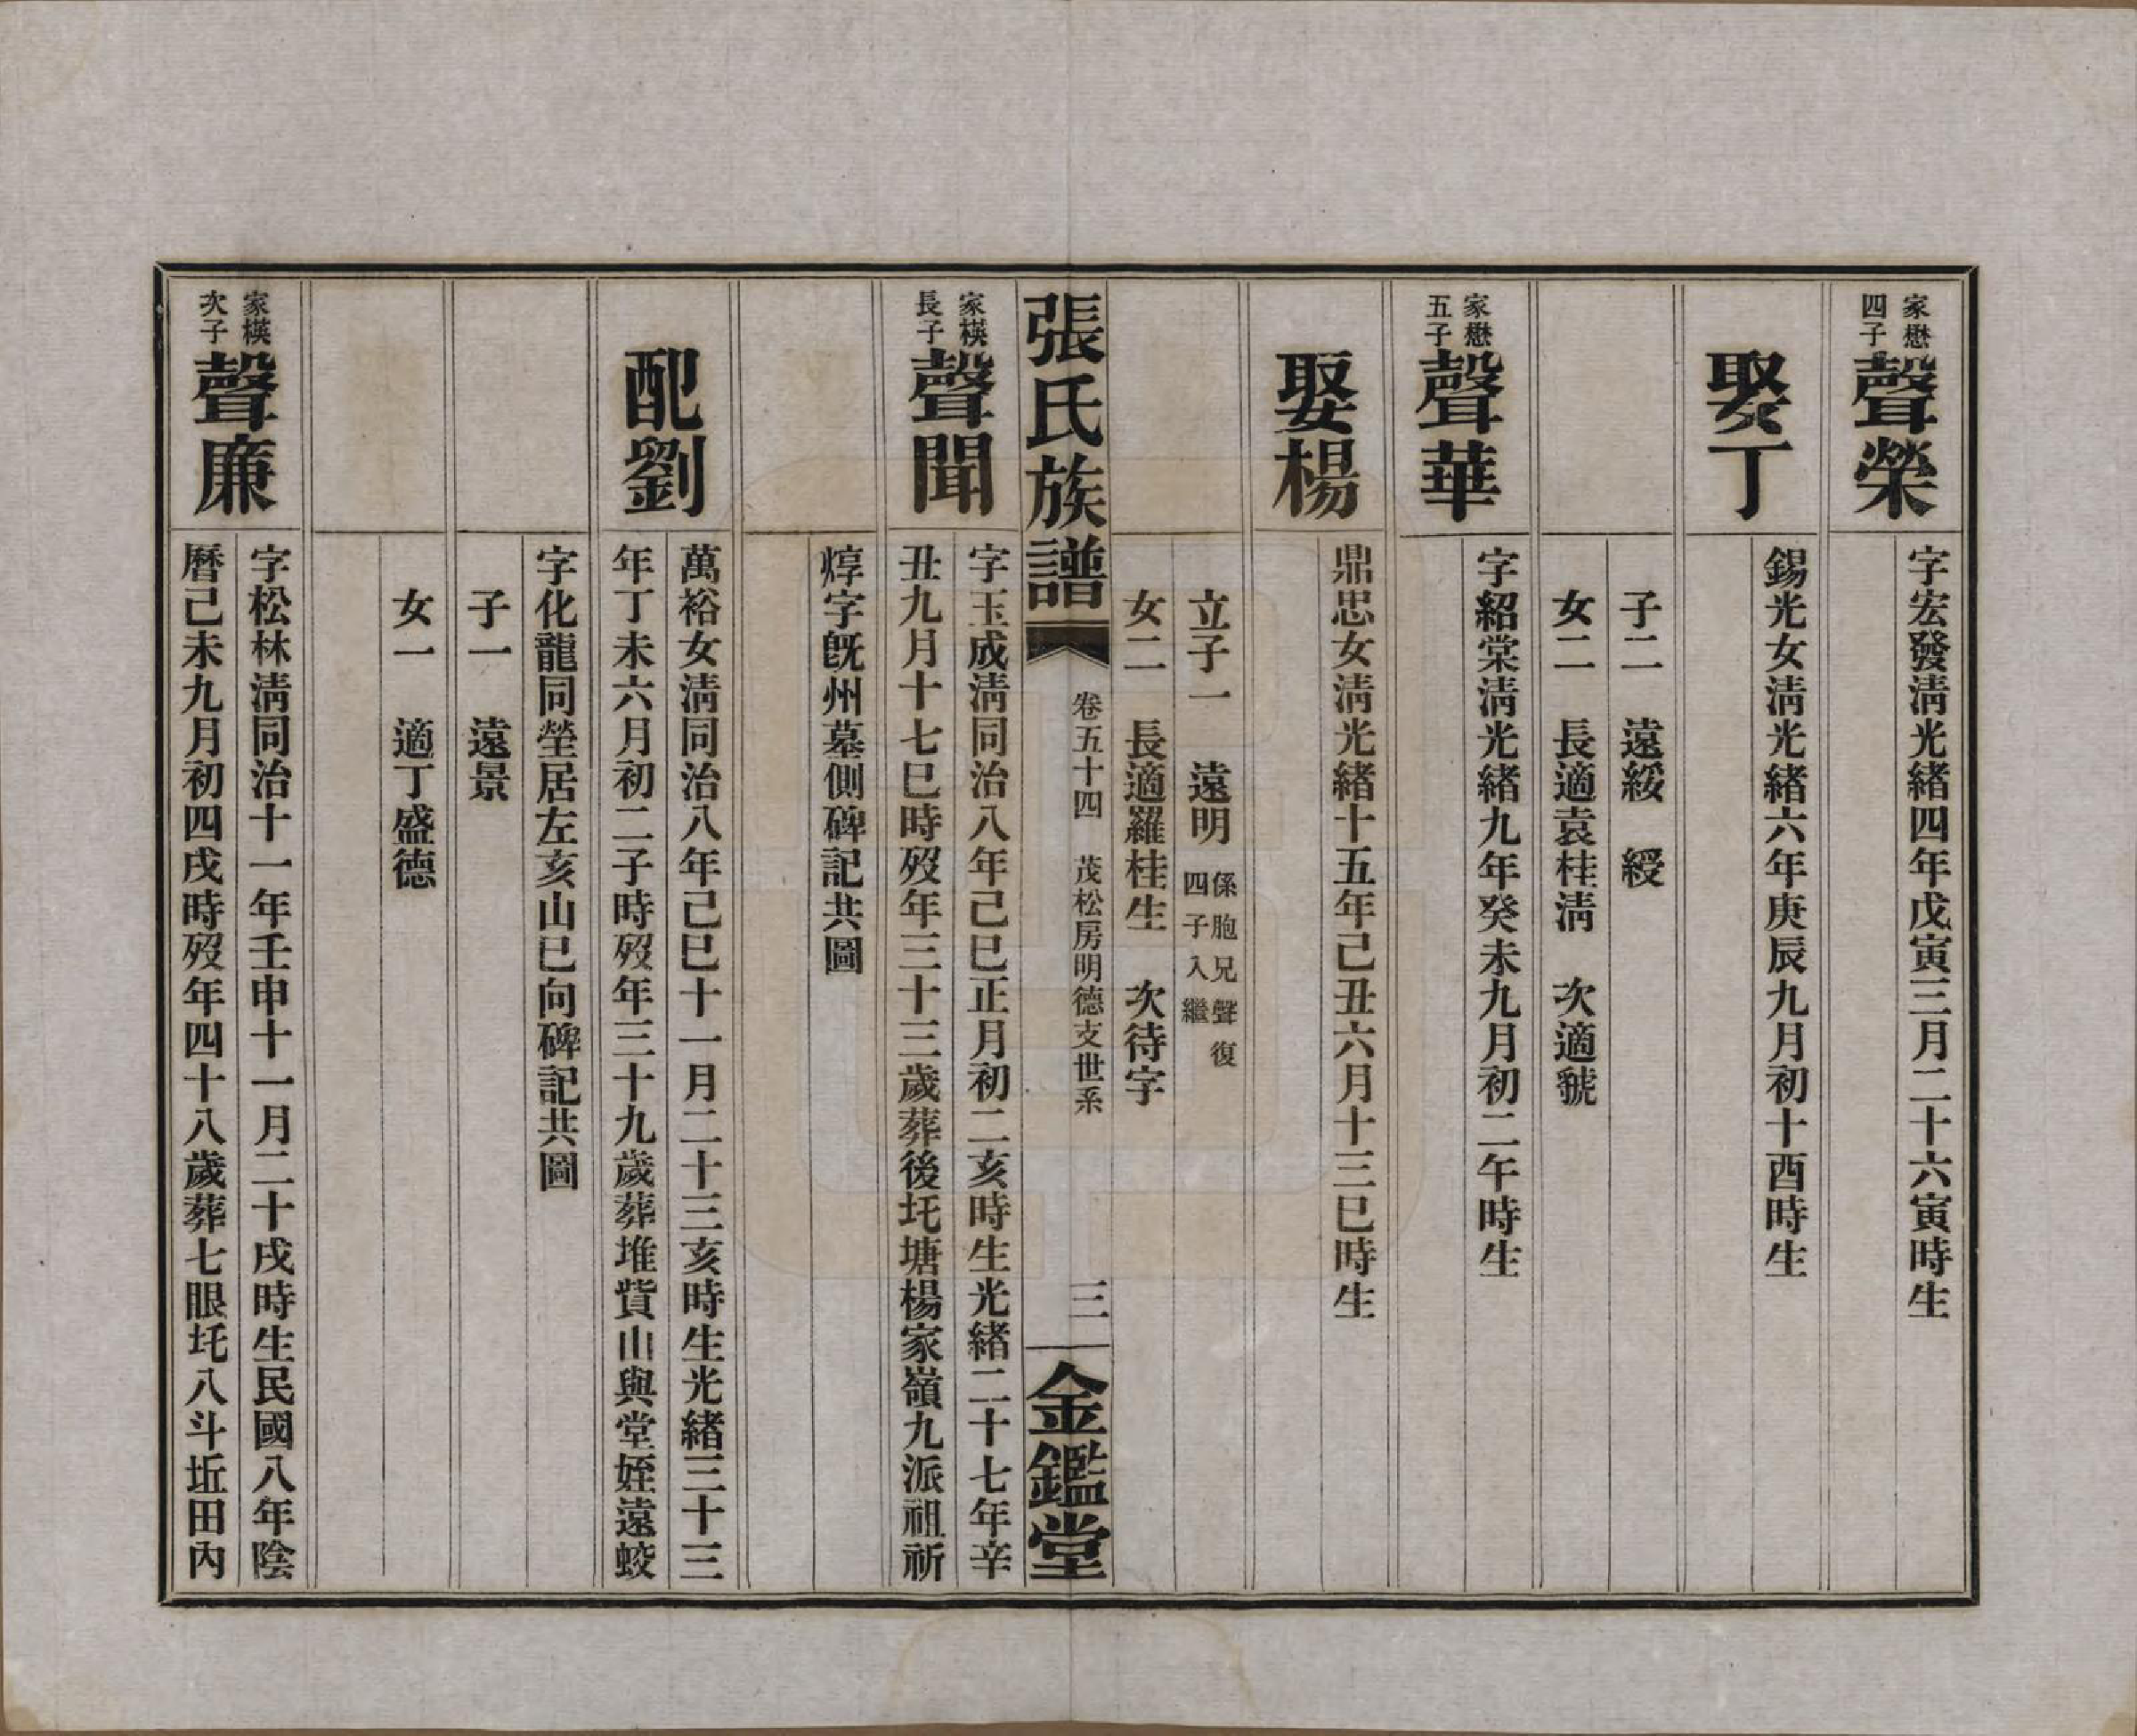 家懋四子
聲榮
字宏發淸光緒四年戊寅三月二十六寅時生
娶丁
錫光女淸光緒六年庚辰九月初十酉時生
子二　遠綏　綬
女二　長適袁桂淸　次適虢
家懋五子
聲華
字紹棠淸光緒九年癸未九月初二午時生
娶楊
鼎忠女淸光緒十五年己丑六月十三巳時生
立子一　遠明　係胞兄聲復四子入繼
女二　長適羅桂生　次待字
張氏族譜
卷五十四　茂松房明德支世系
三
金鑑堂
家楧長子
聲聞
字玉成淸同治八年己巳正月初二亥時生光緒二十七年辛
丑九月十七巳時歿年三十三歲葬後圫塘楊家嶺九派祖祈
焞字旣州墓側碑記共圖
配劉
萬裕女淸同治八年己巳十一月二十三亥時生光緒三十三
年丁未六月初二子時歿年三十九歲葬堆貲山與堂姪遠蛟
字化龍同塋居左亥山巳向碑記共圖
子一　遠景
女一　適丁盛德
家楧次子
聲廉
字松林淸同治十一年壬申十一月二十戌時生民國八年陰
曆己未九月初四戌時歿年四十八歲葬七眼圫八斗坵田內